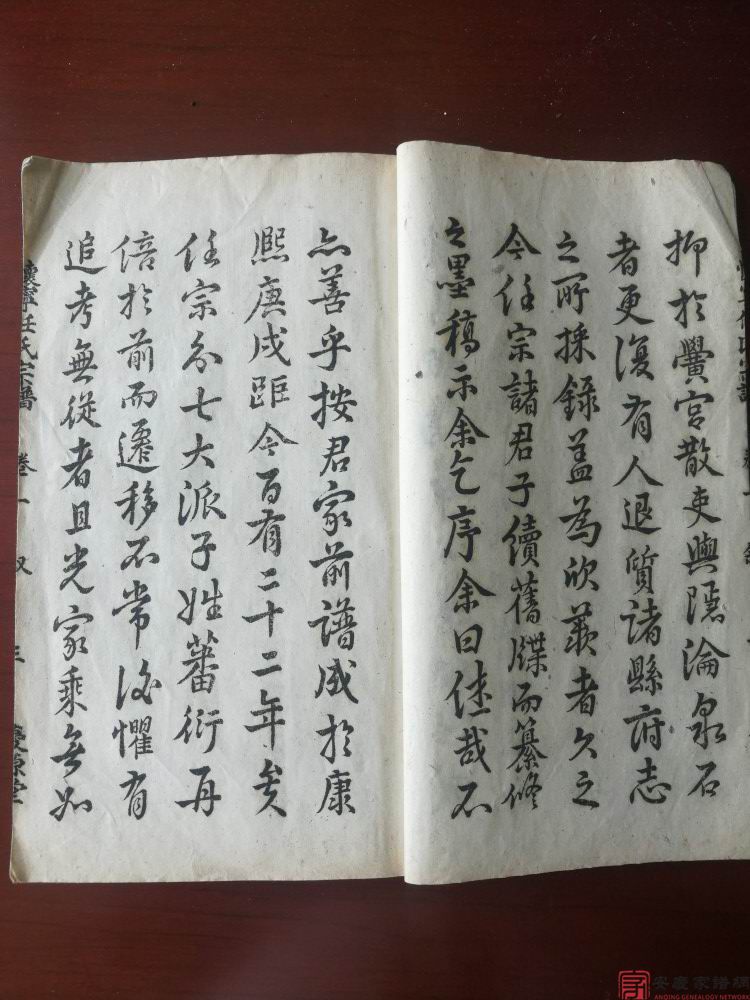 抑於黌宮散吏與隱淪泉石
者更復有人退質諸縣府志
之所採錄盖為欣羨者久之
今任宗諸君子續舊牒而纂修
之墨稿示余乞序余曰佳哉不
亦善乎按君家前譜成於康
熙庚戌距今百有二十二年矣
任宗分七大派子姓蕃衍再
倍於前而遷移不常後懼有
追考無從者且光家乘無如
懷寧任氏宗譜 卷一 叙 三
安慶家譜網
ANQING GENEALOGY NETWORK